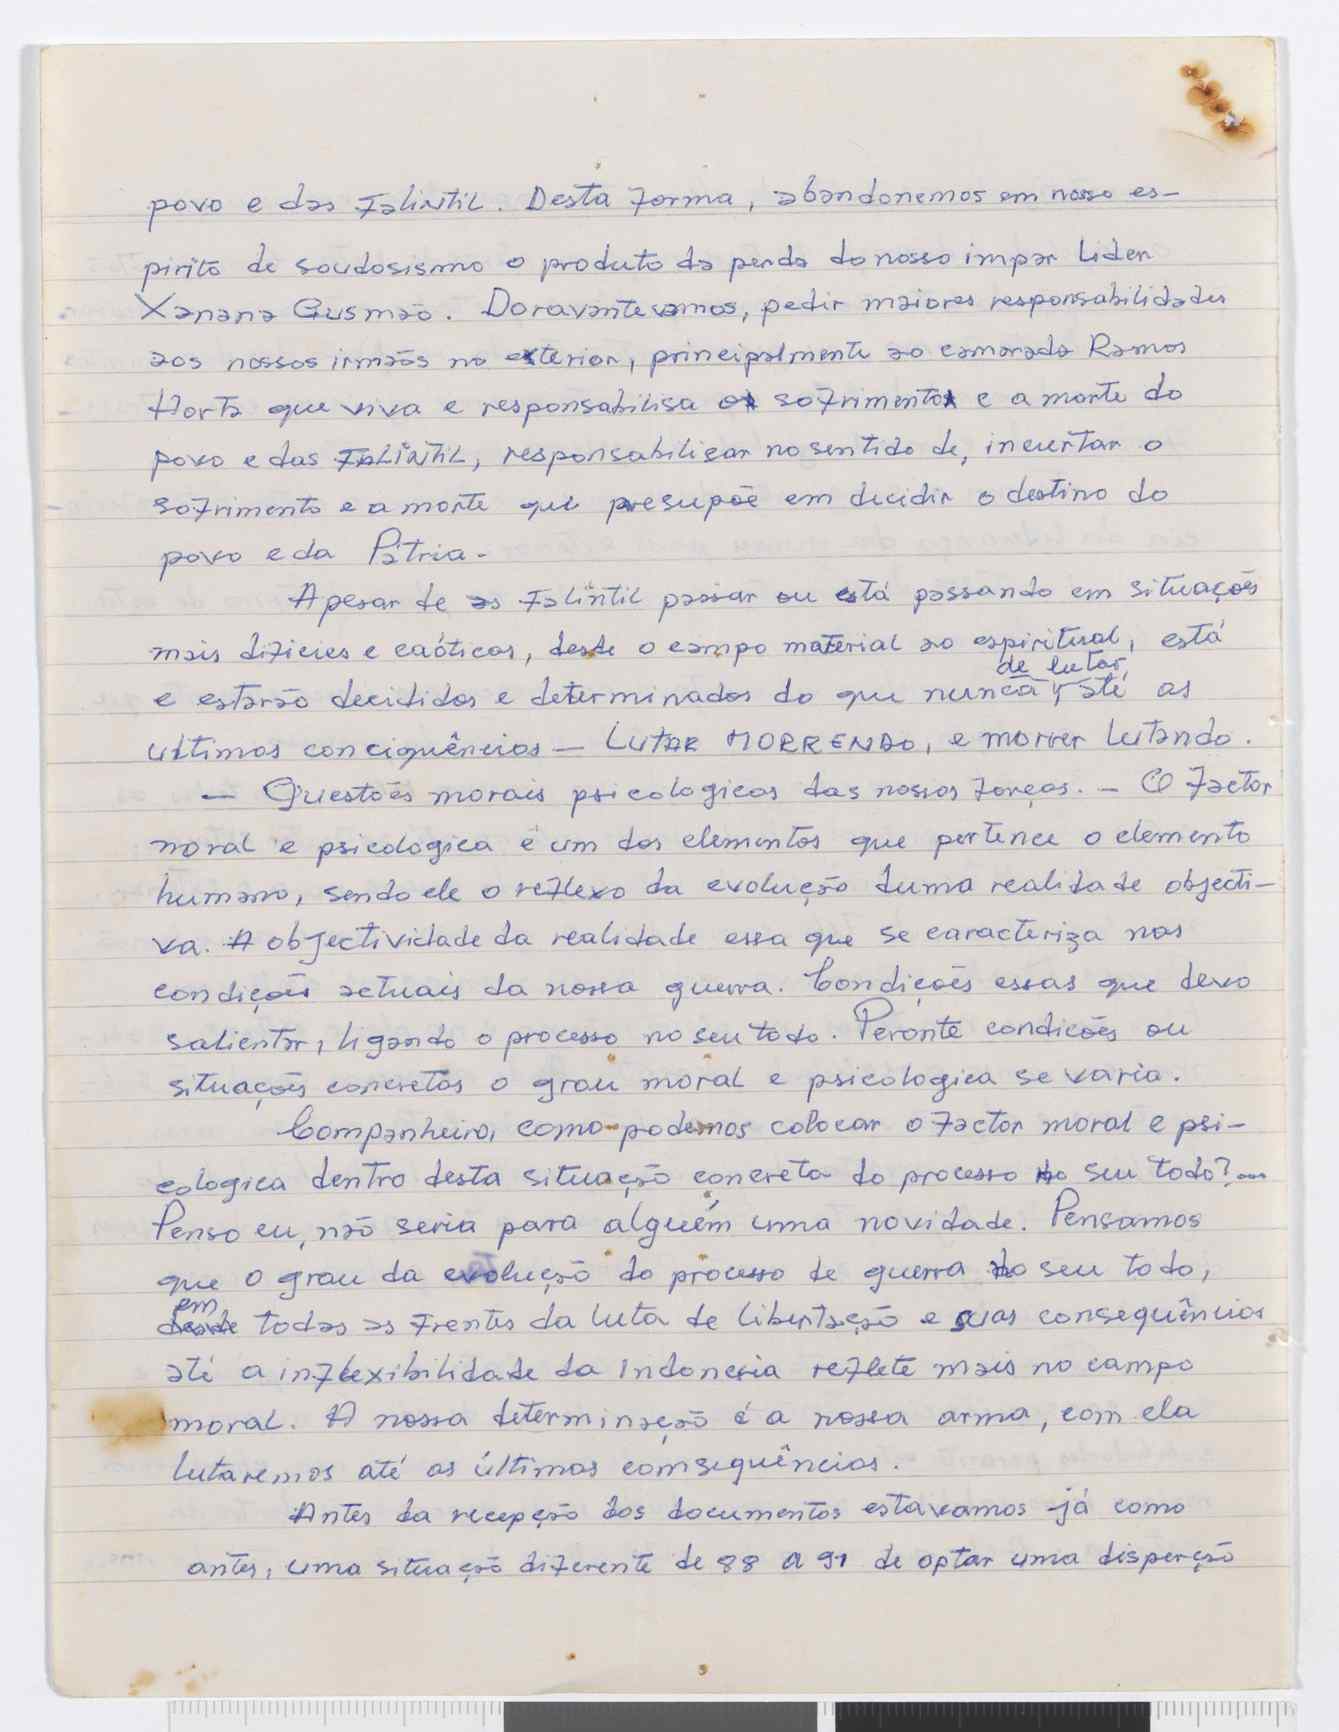 povo e das Falintil. Desta forma, abandonemos em nosso es-
pirito de soudosismo o produto da perda do nosso impar Lider
Xanana Gusmão. Doravante vamos, pedir maiores responsabilidades
aos nossos irmãos no exterior, principalmente ao camarada Ramos
Horta que viva e responsabilisa o sofrimento e a morte do
povo e das FALINTIL, responsabilizar no sentido de, incurtar o
sofrimento e a morte que presupõe em decidir o destino do
povo e da Pátria.
Apesar de as Falintil passar ou está passando em situações
mais dificies e caóticas, desde o campo material ao espiritual, está
e estarão decididos e determinados do que nunca, de lutar, até as
ultimas conciquências — LUTAR MORRENDO, e morrer lutando.
— Questões morais psicologicas das nossas forças. — O factor
moral e psicologica é um dos elementos que pertence o elemento
humano, sendo ele o reflexo da evolução duma realidade objecti-
va. A objectividade da realidade essa que se caracteriza nas
condições actuais da nossa guerra. Condições essas que devo
salientar, ligando o processo no seu todo. Perante condicões ou
situações concretas o grau moral e psicologica se varia.
Companheiro, como podemos colocar o factor moral e psi-
cologica dentro desta situação concreta do processo no seu todo?...
Penso eu, não seria para alguém uma novidade. Pensamos
que o grau da evolução do processo de guerra no seu todo,
em todas as frentes da luta de libertação e suas consequências
até a inflexibilidade da Indonesia reflete mais no campo
moral. A nossa determinação é a nossa arma, com ela
lutaremos até as últimas comsequências.
Antes da recepção dos documentos estavamos já como
antes, uma situação diferente de 88 a 91 de optar uma disperção